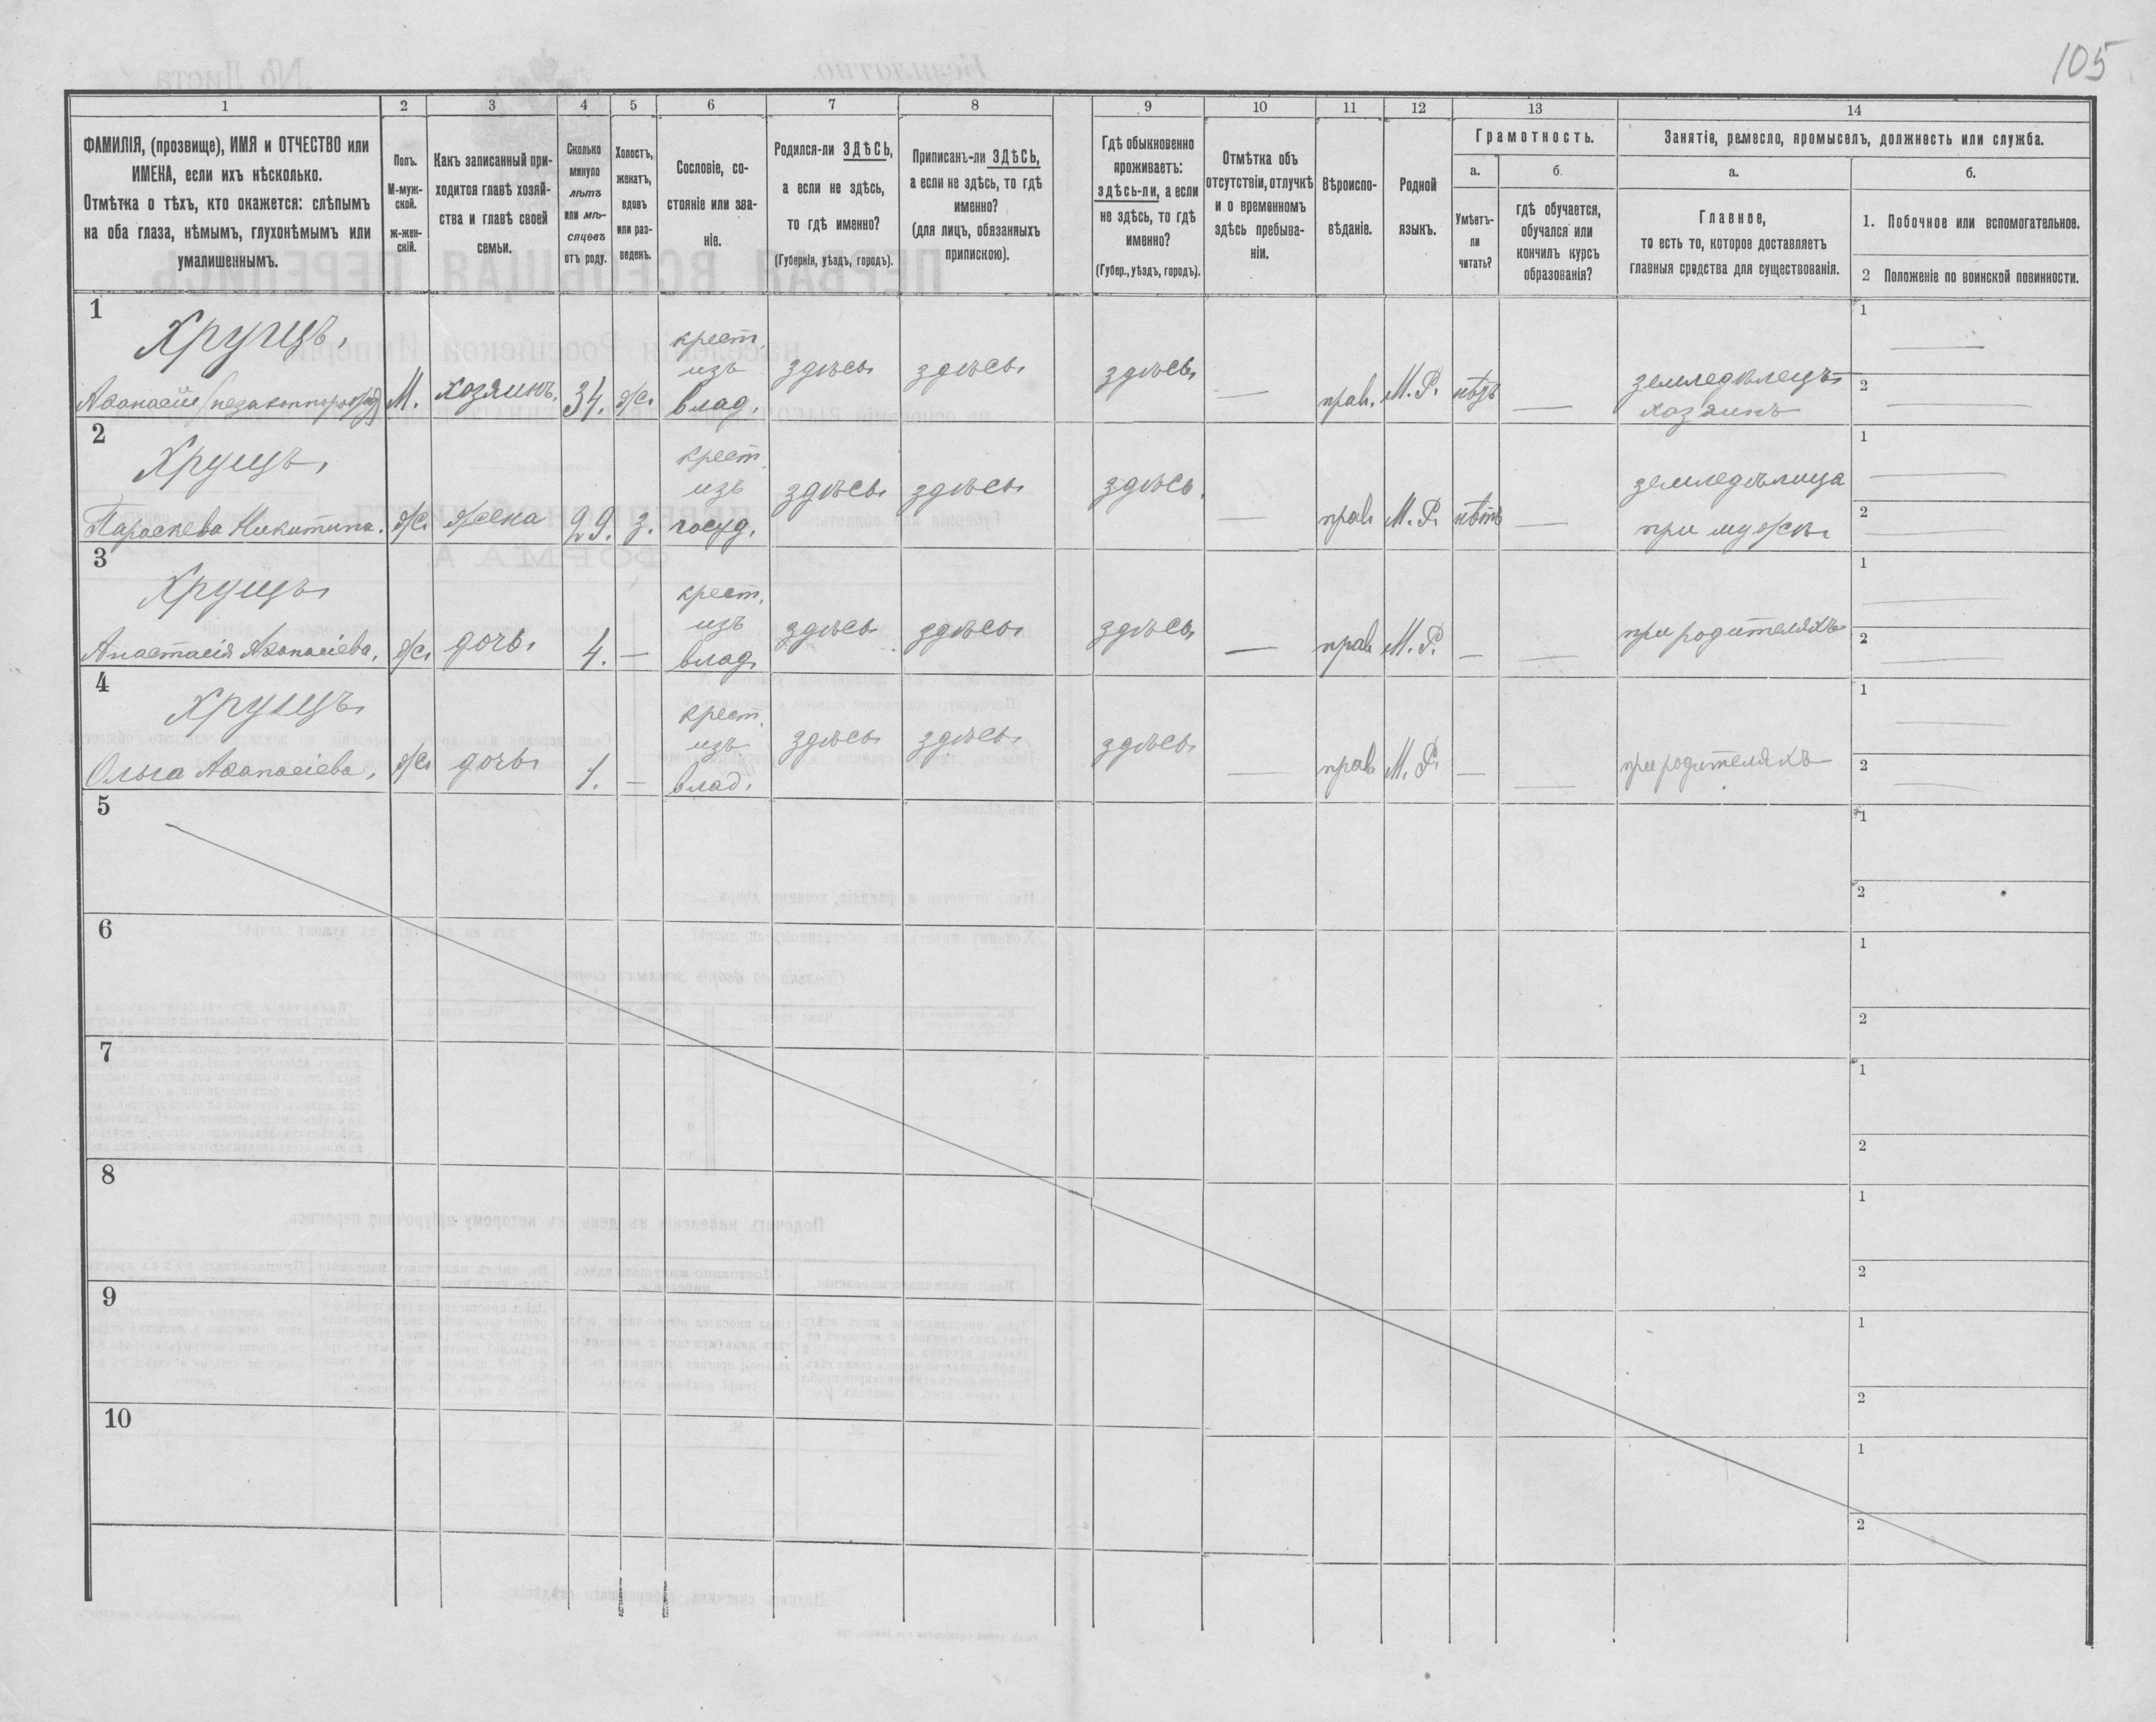 105
1 2 3 4 5 6 7 8 9 10 11 12 13 14
ФАМИЛІЯ, (прозвище), ИМЯ и ОТЧЕСТВО или
ИМЕНА, если ихъ нѣсколько.
Отмѣтка о тѣхъ, кто окажется: слѣпымъ
на оба глаза, нѣмымъ, глухонѣмымъ или
умалишеннымъ.
Полъ.
М-муж-
ской.
ж-жен-
скій.
Какъ записанный при-
ходится главѣ хозяй-
ства и главѣ своей
семьи.
Сколько
минуло
лѣтъ
или мѣ-
сяцевъ
отъ роду.
Холостъ,
женатъ,
вдовъ
или раз-
веденъ.
Сословіе, со-
стояніе или зва-
ніе.
Родился-ли ЗДѢСЬ,
а если не здѣсь,
то гдѣ именно?
(Губернія, уѣздъ, городъ).
Приписанъ-ли ЗДѢСЬ,
а если не здѣсь, то гдѣ
именно?
(для лицъ, обязанныхъ
припискою).
Гдѣ обыкновенно
проживаетъ:
здѣсь-ли, а если
не здѣсь, то гдѣ
именно?
(Губер., уѣздъ, городъ).
Отмѣтка объ
отсутствіи, отлучкѣ
и о временномъ
здѣсь пребыва-
ніи.
Вѣроиспо-
вѣданіе.
Родной
языкъ.
Грамотность.
а.
Умѣетъ-
ли
читать?
б.
гдѣ обучается,
обучался или
кончилъ курсъ
образованія?
Занятіе, ремесло, промыселъ, должность или служба.
а.
Главное,
то есть то, которое доставляетъ
главныя средства для существованія.
б.
1. Побочное или вспомогательное.
2 Положеніе по воинской повинности.
1
Хрущъ,
Аѳанасій (незаконнорожд)
М.
хозяинъ,
34.
ж.
крест.
изъ
влад.
здѣсь
здѣсь
здѣсь
—
прав.
М. Р.
нѣтъ
—
земледѣлецъ
хозяинъ
1 —
2 —
2
Хрущъ,
Параскева Никитина.
ж.
жена
29.
з.
крест.
изъ
госуд.
здѣсь
здѣсь
здѣсь.
—
прав.
М. Р.
нѣтъ
—
земледѣлица
при мужѣ
1 —
2 —
3
Хрущъ
Анастасія Аѳанасіева,
ж.
дочь
4.
—
крест.
изъ
влад.
здѣсь
здѣсь
здѣсь
—
прав.
М. Р.
—
—
при родителяхъ
1 —
2 —
4
Хрущъ
Ольга Аѳанасіева,
ж.
дочь
1.
—
крест.
изъ
влад.
здѣсь
здѣсь
здѣсь
—
прав.
М. Р.
—
—
при родителяхъ
1 —
2 —
5
1
2
6
1
2
7
1
2
8
1
2
9
1
2
10
1
2